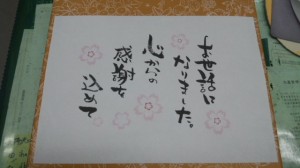 お世話に
なりました。
心からの
感謝を
込めて